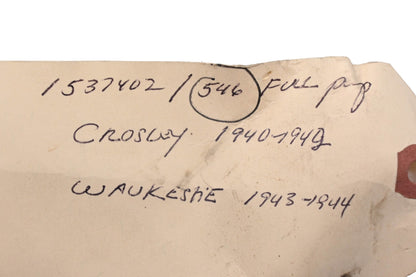 1537402 / 546 FUEL pmp
CROSLEY 1940-1942
WAUKESHE 1943-1944